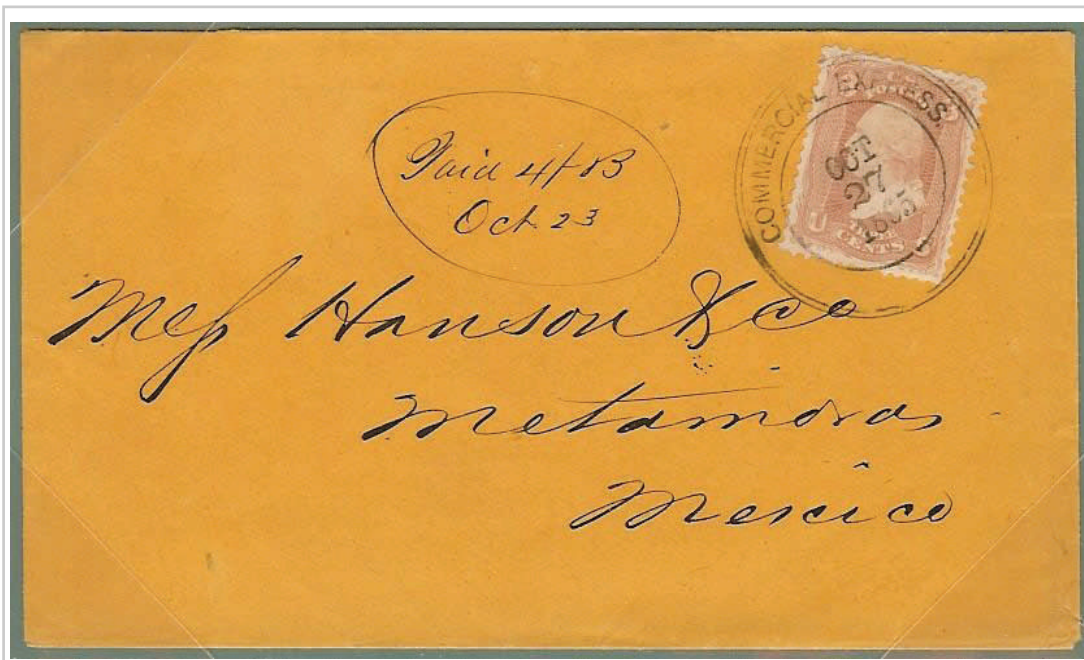 Paid 4/ RB
Oct. 23
COMMERCIAL EXPRESS.
OCT
27
1865
U
CENTS
Mess Hanson & co
Metamoras
Mexico